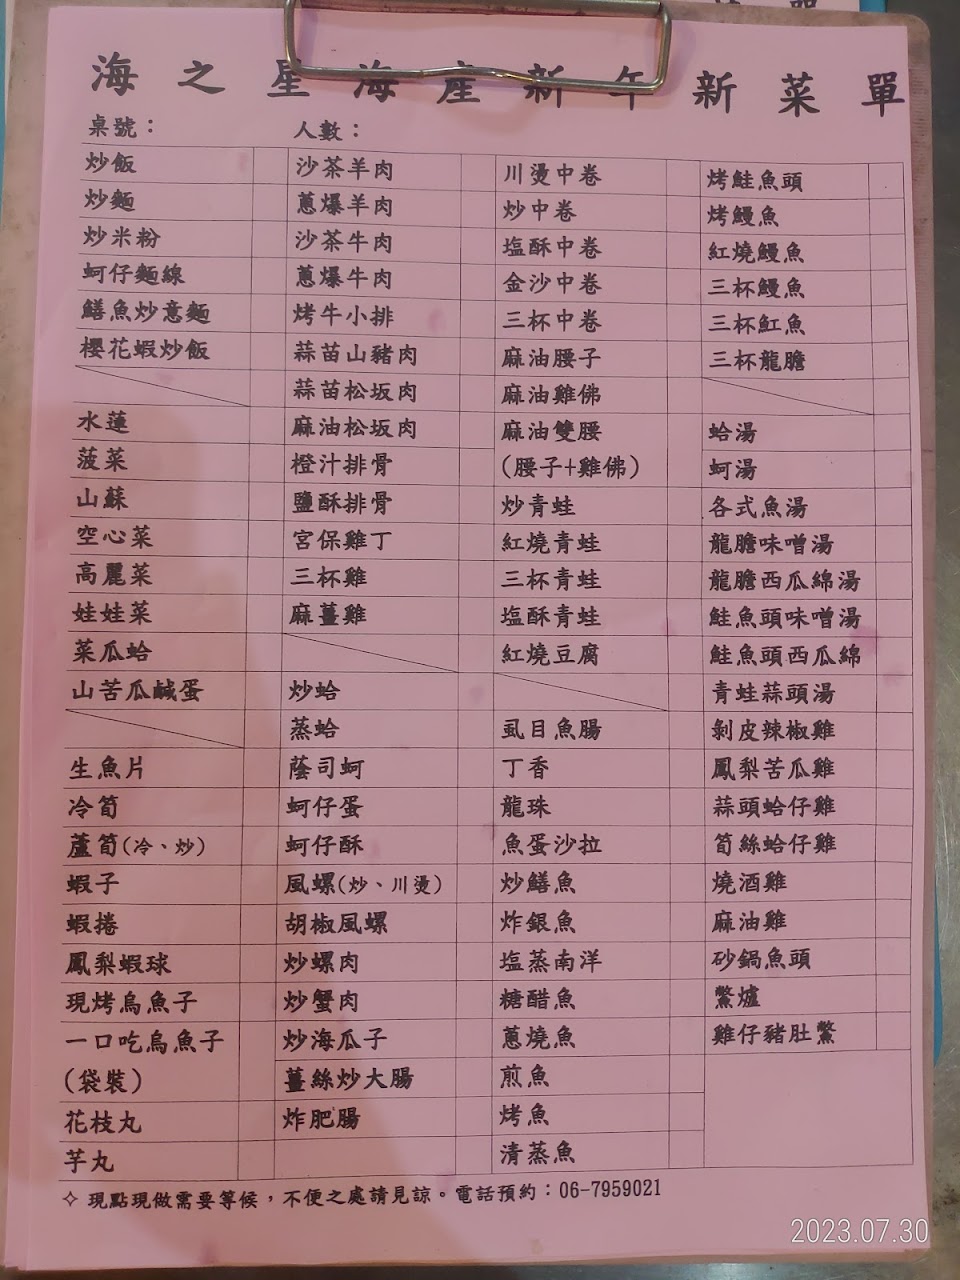 海之星海產新年新菜單
桌號：
人數：
炒飯
炒麵
炒米粉
蚵仔麵線
鱔魚炒意麵
櫻花蝦炒飯
水蓮
菠菜
山蘇
空心菜
高麗菜
娃娃菜
菜瓜蛤
山苦瓜鹹蛋
生魚片
冷筍
蘆筍(冷、炒)
蝦子
蝦捲
鳳梨蝦球
現烤烏魚子
一口吃烏魚子
(袋裝)
花枝丸
芋丸
沙茶羊肉
蔥爆羊肉
沙茶牛肉
蔥爆牛肉
烤牛小排
蒜苗山豬肉
蒜苗松坂肉
麻油松坂肉
橙汁排骨
鹽酥排骨
宮保雞丁
三杯雞
麻薑雞
炒蛤
蒸蛤
蔭司蚵
蚵仔蛋
蚵仔酥
風螺(炒、川燙)
胡椒風螺
炒螺肉
炒蟹肉
炒海瓜子
薑絲炒大腸
炸肥腸
川燙中卷
炒中卷
塩酥中卷
金沙中卷
三杯中卷
麻油腰子
麻油雞佛
麻油雙腰
(腰子+雞佛)
炒青蛙
紅燒青蛙
三杯青蛙
塩酥青蛙
紅燒豆腐
虱目魚腸
丁香
龍珠
魚蛋沙拉
炒鱔魚
炸銀魚
塩蒸南洋
糖醋魚
蔥燒魚
煎魚
烤魚
清蒸魚
烤鮭魚頭
烤鰻魚
紅燒鰻魚
三杯鰻魚
三杯魟魚
三杯龍膽
蛤湯
蚵湯
各式魚湯
龍膽味噌湯
龍膽西瓜綿湯
鮭魚頭味噌湯
鮭魚頭西瓜綿
青蛙蒜頭湯
剝皮辣椒雞
鳳梨苦瓜雞
蒜頭蛤仔雞
筍絲蛤仔雞
燒酒雞
麻油雞
砂鍋魚頭
鱉爐
雞仔豬肚鱉
✧ 現點現做需要等候，不便之處請見諒。電話預約：06-7959021
2023.07.30